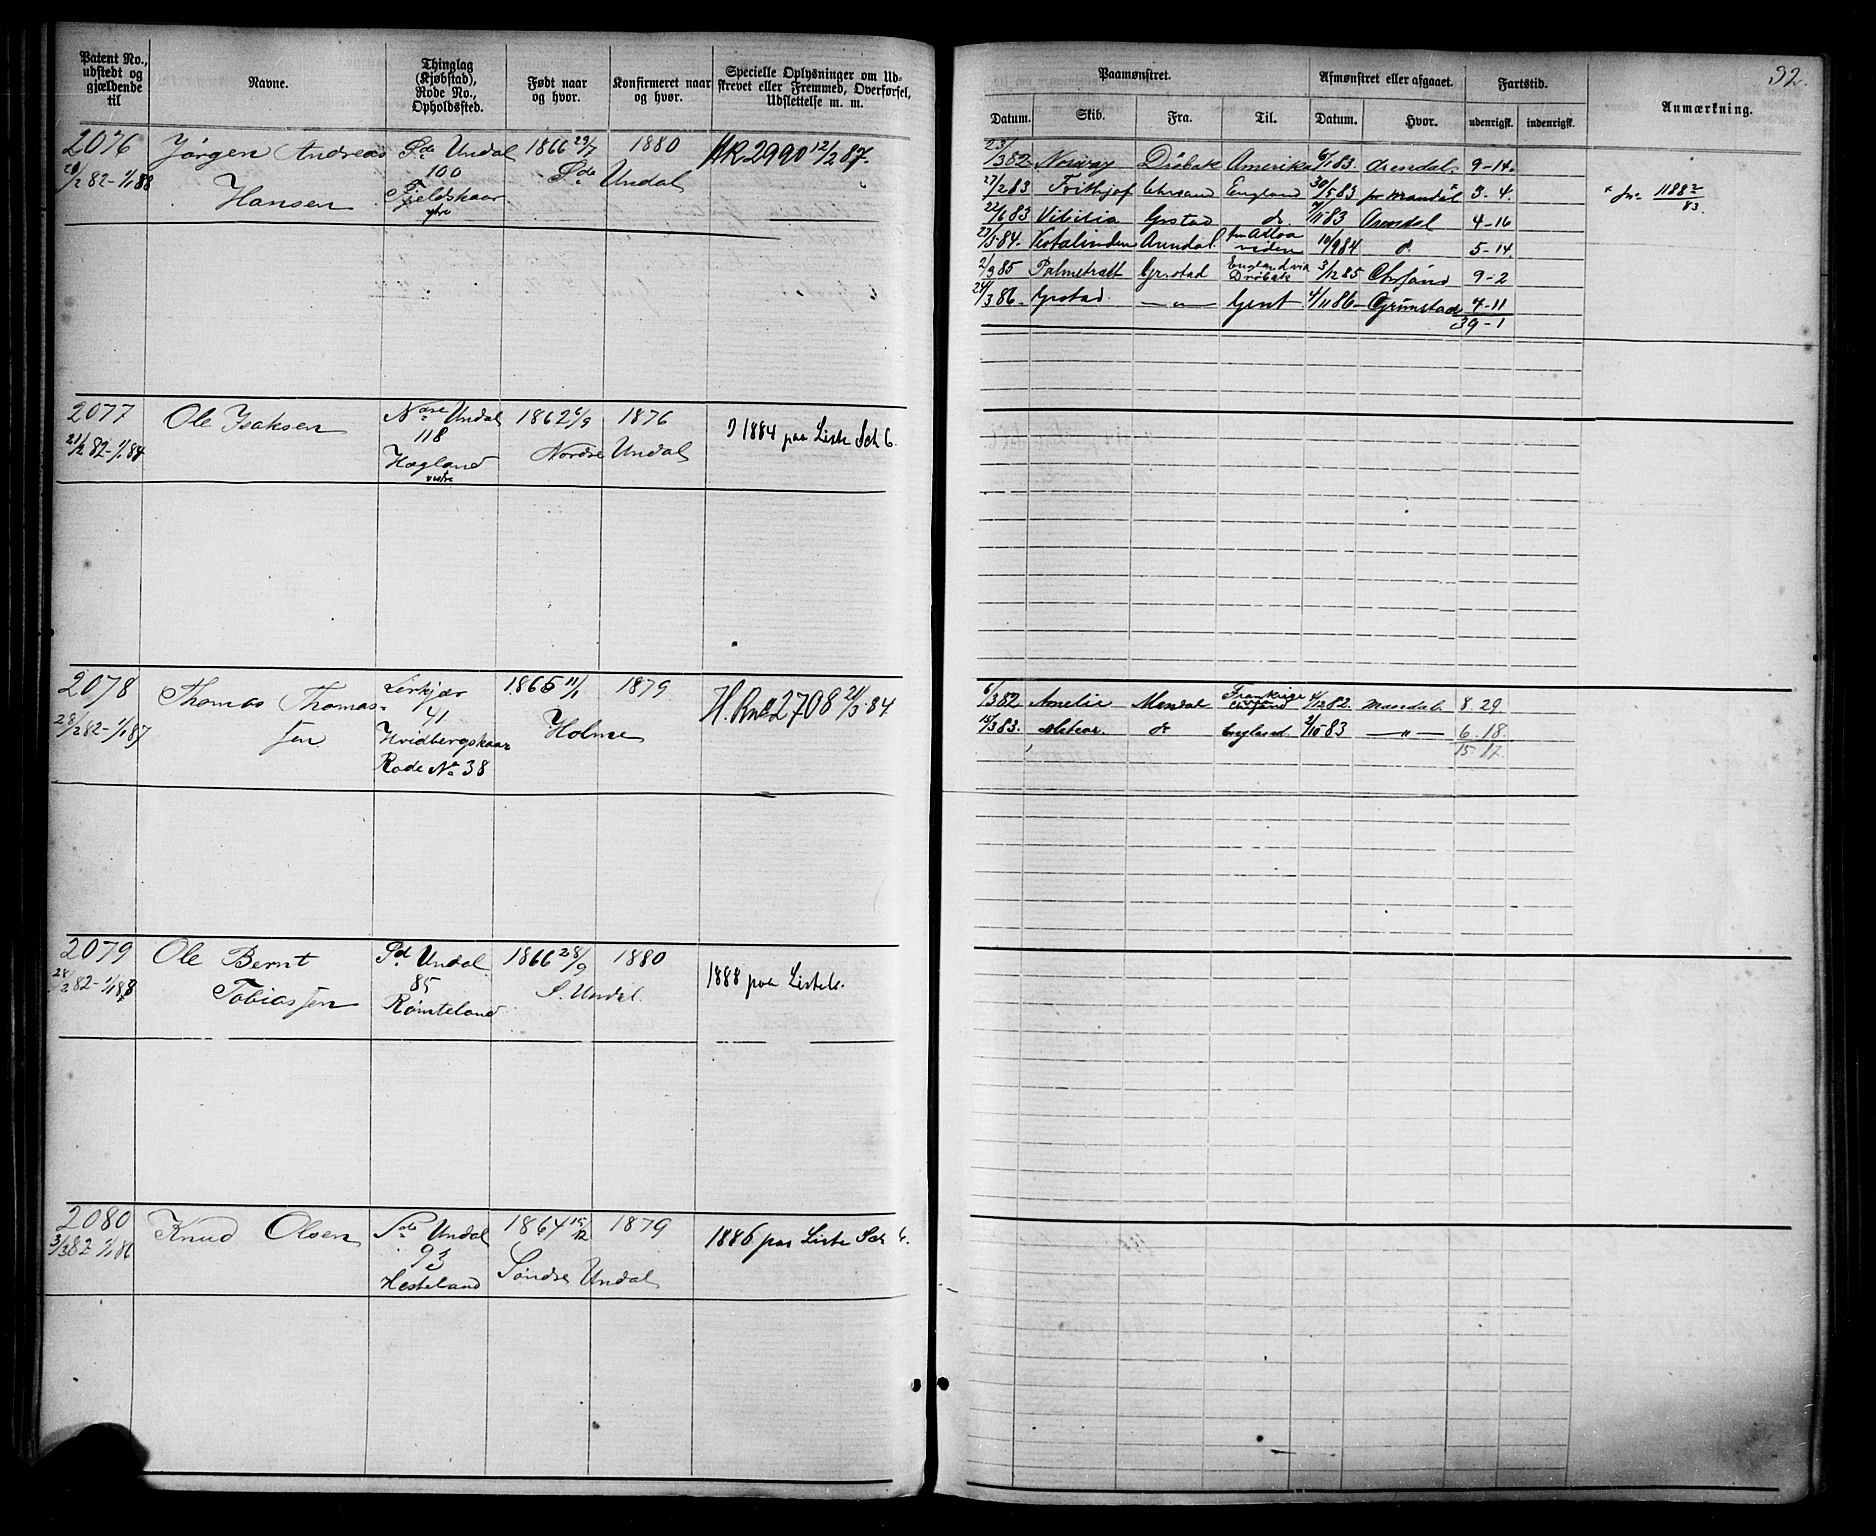 Patent No., udstedt og gjældende til
Navne.
Thinglag (Kjøbstad), Rode No., Opholdssted.
Født naar og hvor.
Konfirmeret naar og hvor.
Specielle Oplysninger om Udstrevet eller Fremmed, Overførsel, Udslettelse m. m.
Paamønstret.
Afmønstret eller afgaaet.
Fartstid.
Anmærkning.
32.
Datum. Skib. Fra. Til. Datum. Hvor. udenrigsk. indenrigsk.
2076 Jørgen Andreas Sde Undal 1866 29/7 1880 HR 2990 12/2 87.
20/2 82-1/1 88 Hansen 100 Sde Undal
Fjeldskaar
ytre
23/3 82 Norway Dröbak Amerika 6/1 83. Arendal. 9-14.
27/2 83 Frithjof Chrsand England 30/5 83 Mandal 3-4. 1188 2/83.
22/6 83 Vibilia Grstad do. 7/11 83 Arendal 4-16
27/5 84. Arendal. 10/9 84 do. 5-14
2/3 85 Palmetræt Grstad England via Dröbak 3/12 85 Chrsand 9-2
24/3 86- Grstad. —"— Gent 4/11 86- Grimstad 4-11
39-1
2077 Ole Isaksen Ndre Undal 1862 6/9 1876 1884 paa Liste Sch 6.
21/2 82-1/1 84 118 Nordre Undal
Høgland
vestre
2078 Thomas Thomas- Lerkjær 1865 11/1 1879 H. Rulle 2708 21/3 84
28/2 82-1/1 87 sen 41 Holme
Hvidbergskaar
Rode No 38
6/3 82 Amelie Mandal Frankrige 4/12 82 Mandal 8. 29
14/3 83. Meteor. do England 2/10 83 —"— 6. 18
15. 17.
2079 Ole Bernt Sd Undal 1866 28/9 1880 1888 paa Liste
28/2 82-1/1 88 Tobiassen 85 S. Undal.
Rømteland
2080 Knud Olsen Sde Undal 1864 15/12 1879 1886 paa Liste Sch 6.
3/3 82-1/1 86 93 Søndre Undal
Hesteland